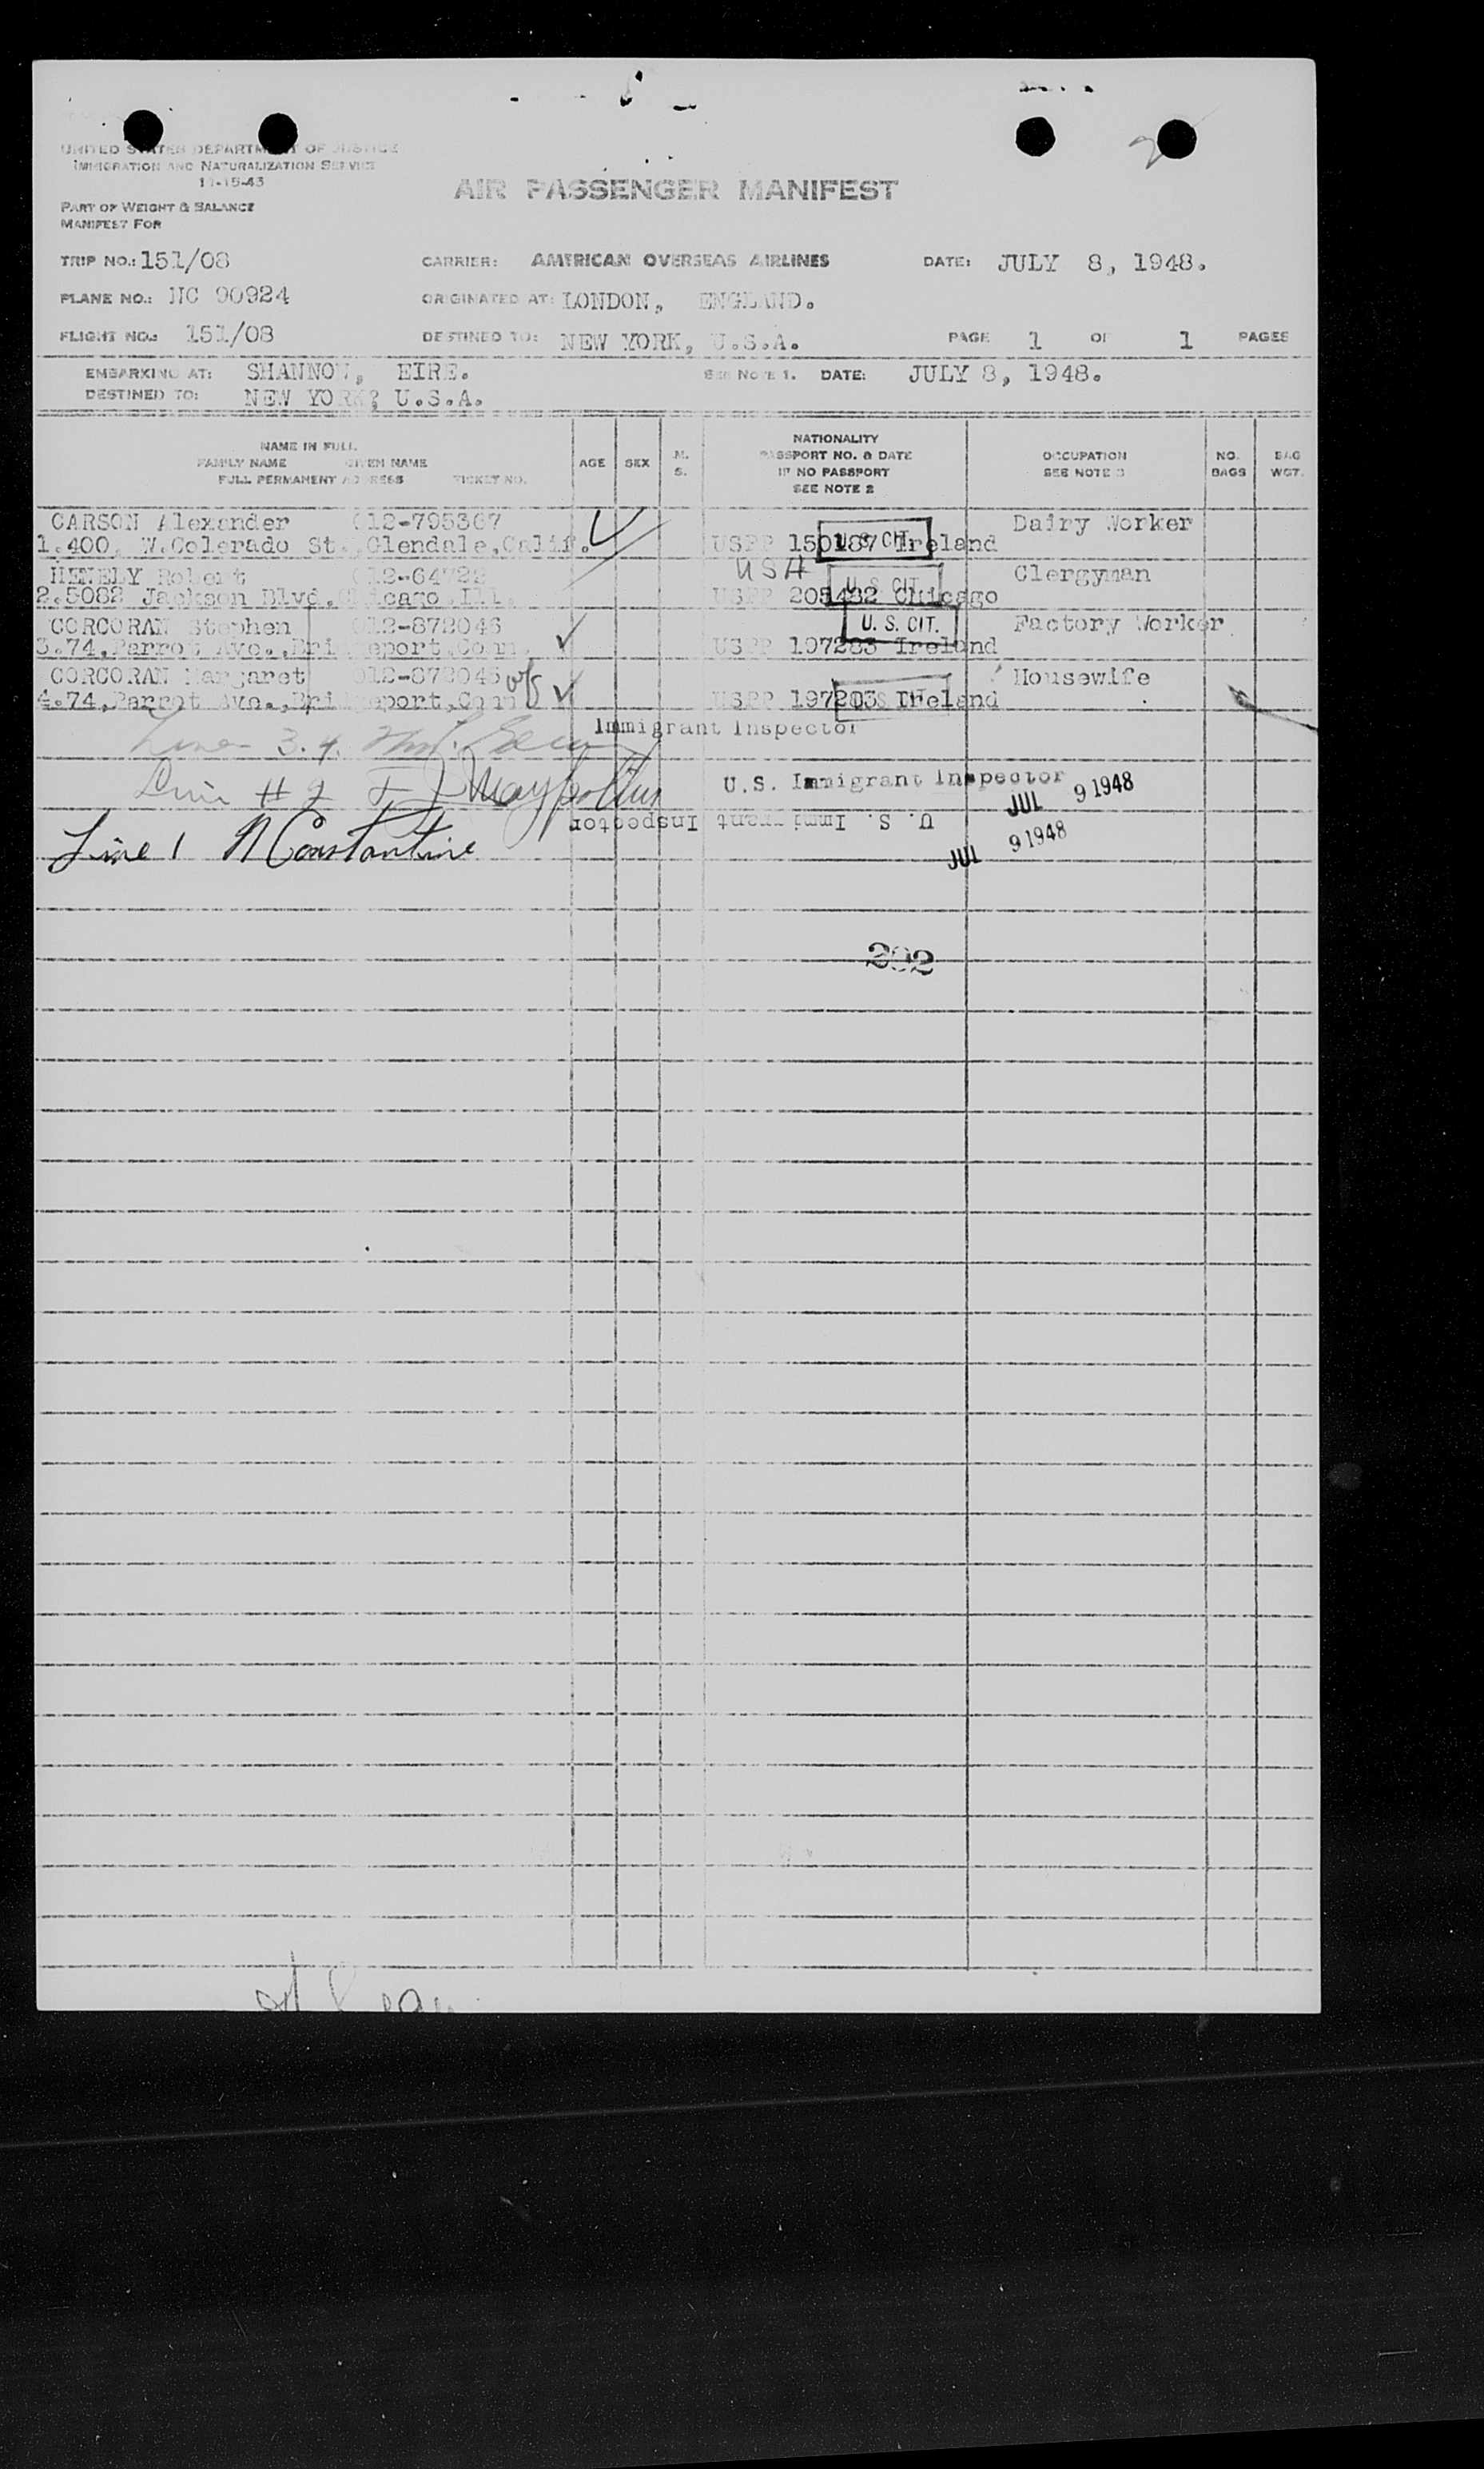 UNITED STATES DEPARTMENT OF JUSTICE
IMMIGRATION AND NATURALIZATION SERVICE
11-15-43
AIR PASSENGER MANIFEST
PART OF WEIGHT & BALANCE
MANIFEST FOR
TRIP NO.: 151/08 CARRIER: AMERICAN OVERSEAS AIRLINES DATE: JULY 8, 1948.
PLANE NO.: NC 90924 ORIGINATED AT: LONDON, ENGLAND.
FLIGHT NO.: 151/08 DESTINED TO: NEW YORK, U.S.A. PAGE 1 OF 1 PAGES
EMBARKING AT: SHANNON, EIRE. SEE NOTE 1. DATE: JULY 8, 1948.
DESTINED TO: NEW YORK? U.S.A.
NAME IN FULL
FAMILY NAME GIVEN NAME
FULL PERMANENT ADDRESS TICKET NO.
AGE SEX M. S.
NATIONALITY
PASSPORT NO. & DATE
IF NO PASSPORT
SEE NOTE 2
OCCUPATION
SEE NOTE 3
NO. BAGS
BAG WGT.
CARSON Alexander 012-795367 Dairy Worker
1.400, W.Colerado St.,Glendale,Calif. USPP 150187 Ireland
U.S. CIT.
USA
Robert 012-64722 Clergyman
2.5082 Jackson Blvd.Chicago.Ill. USPP 205432 Chicago
U.S. CIT.
CORCORAN Stephen 012-872046 Factory Worker
3.74,Parrot Ave.,Bridgeport,Conn. USPP 197283 Ireland
U. S. CIT.
CORCORAN Margaret 012-872045 Housewife
4.74,Parrot Ave.,Bridgeport,Conn. USPP 197203 Ireland
Immigrant Inspector
Lines 3.4.
U.S. Immigrant Inspector
JUL 9 1948
Line # 2
U. S. Immigrant Inspector
JUL 9 1948
Line 1 N Constantine
202